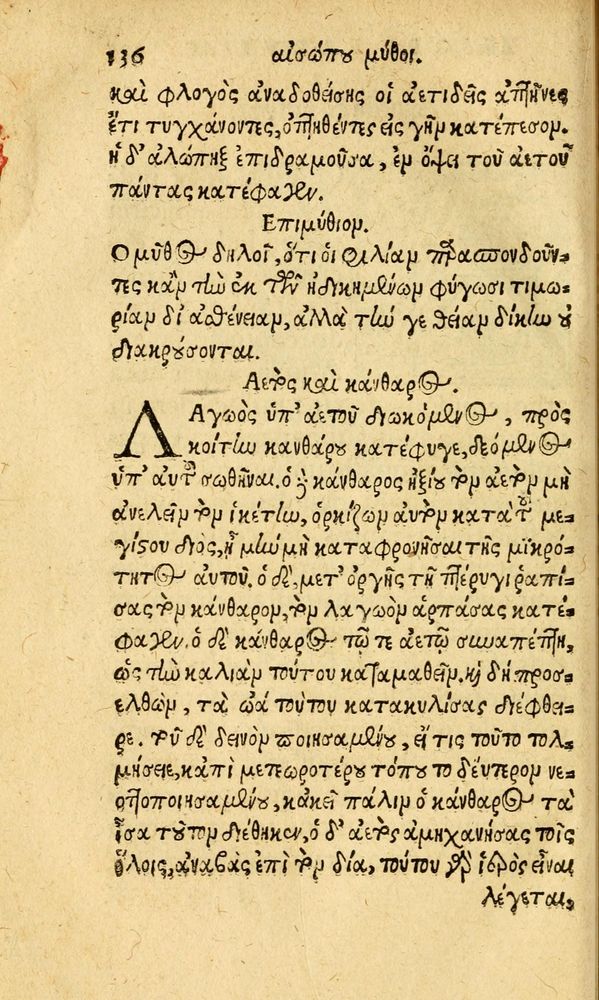 136 αἰσώπου μῦθοι.
καὶ φλογὸς ἀναδοθείσης οἱ ἀετιδεῖς ἀπτῆνες
ἔτι τυγχάνοντες, ὀπτηθέντες εἰς γῆν κατέπεσον.
ἡ δ' ἀλώπηξ ἐπιδραμοῦσα, ἐν ὄψει τοῦ ἀετοῦ
πάντας κατέφαγεν.
Επιμύθιον.
Ο μῦθος δηλοῖ, ὅτι οἱ φιλίαν παρασπονδοῦν-
τες κἂν τὴν ἐκ τῶν ἠδικημένων φύγωσι τιμω-
ρίαν δι' ἀσθένειαν, ἀλλὰ τήν γε θείαν δίκην οὐ
διακρούσονται.
Αετὸς καὶ κάνθαρος.
ΛΑγωὸς ὑπ' ἀετοῦ διωκόμενος, πρὸς
κοίτην κανθάρου κατέφυγε, δεόμενος
ὑπ' αὐτοῦ σωθῆναι. ὁ δὲ κάνθαρος ἠξίου τὸν ἀετὸν μὴ
ἀνελεῖν τὸν ἱκέτην, ὁρκίζων αὐτὸν κατὰ τοῦ με-
γίστου Διὸς, ἦ μὴν μὴ καταφρονῆσαι τῆς μικρό-
τητος αὐτοῦ. ὁ δὲ, μετ' ὀργῆς τῇ πτέρυγι ῥαπί-
σας τὸν κάνθαρον, τὸν λαγωὸν ἁρπάσας κατέ-
φαγεν. ὁ δὲ κάνθαρος τῷ τε ἀετῷ συναπέπτη,
ὡς τὴν καλιὰν τούτου καταμαθεῖν. καὶ δὴ προσ-
ελθὼν, τὰ ὠὰ τούτου κατακυλίσας διέφθει-
ρε. τοῦ δὲ δεινὸν ποιησαμένου, εἴ τις τοῦτο τολ-
μήσειε, κἀπὶ μετεωροτέρου τόπου τὸ δεύτερον νε-
οττοποιησαμένου, κἀκεῖ πάλιν ὁ κάνθαρος τὰ
ἴσα τοῦτον διέθηκεν, ὁ δ' ἀετὸς ἀμηχανήσας τοῖς
ὅλοις, ἀναβὰς ἐπὶ τὸν δία, τούτου γὰρ ἱερὸς εἶναι
λέγεται,